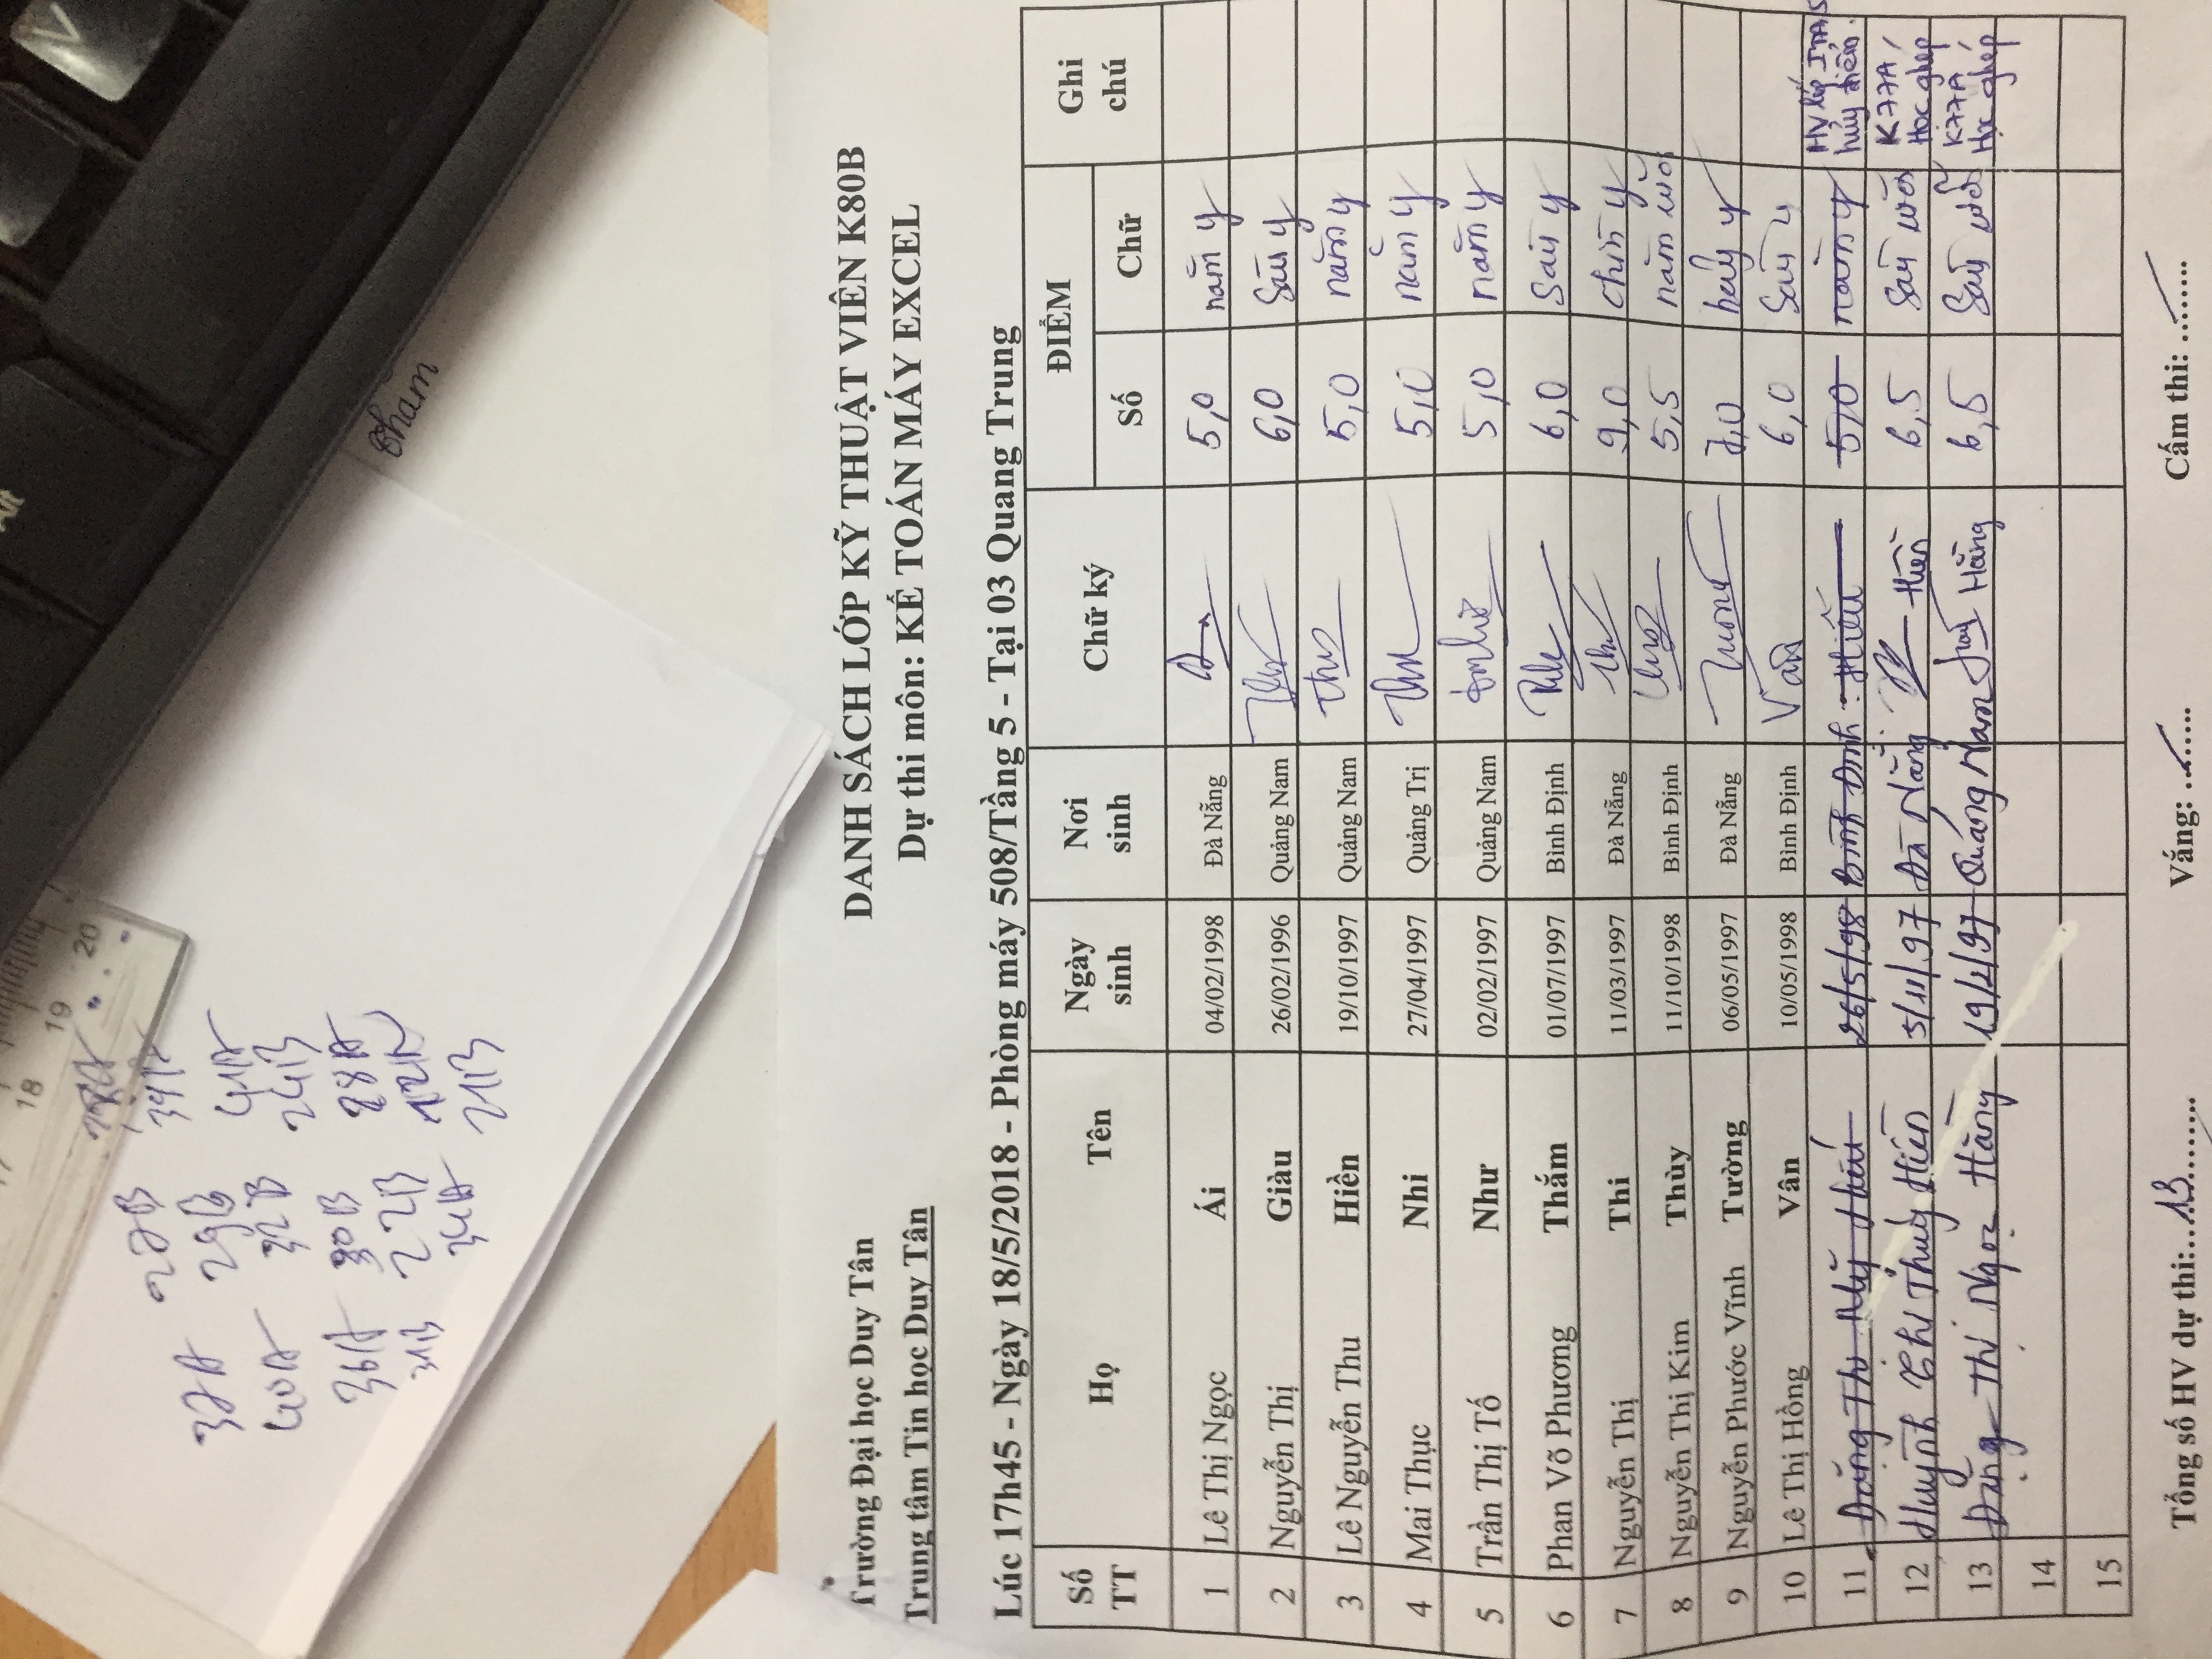 Trường Đại học Duy Tân
Trung tâm Tin học Duy Tân
DANH SÁCH LỚP KỸ THUẬT VIÊN K80B
Dự thi môn: KẾ TOÁN MÁY EXCEL
Lúc 17h45 - Ngày 18/5/2018 - Phòng máy 508/Tầng 5 - Tại 03 Quang Trung
Số TT Họ Tên Ngày sinh Nơi sinh Chữ ký ĐIỂM Ghi chú
Số Chữ
1 Lê Thị Ngọc Ái 04/02/1998 Đà Nẵng 5,0 năm y
2 Nguyễn Thị Giàu 26/02/1996 Quảng Nam 6,0 Sáu y
3 Lê Nguyễn Thu Hiền 19/10/1997 Quảng Nam 5,0 năm y
4 Mai Thục Nhi 27/04/1997 Quảng Trị 5,0 năm y
5 Trần Thị Tố Như 02/02/1997 Quảng Nam 5,0 năm y
6 Phan Võ Phương Thắm 01/07/1997 Bình Định 6,0 Sáu y
7 Nguyễn Thị Thi 11/03/1997 Đà Nẵng 9,0 chín y
8 Nguyễn Thị Kim Thùy 11/10/1998 Bình Định 5,5 năm rưỡi
9 Nguyễn Phước Vĩnh Tường 06/05/1997 Đà Nẵng Tương 7,0 bảy y
10 Lê Thị Hồng Vân 10/05/1998 Bình Định Vân 6,0 Sáu y
11 Đặng Thị Mỹ Hiếu 26/5/98 Bình Định Hiếu 5,0 năm y HV lớp hủy điểm.
12 Huỳnh Thị Thúy Hiền 5/11/97 Đà Nẵng Hiền 6,5 Sáu rưỡi K77A, Học ghép
13 Đặng Thị Ngọc Hằng 19/2/97 Quảng Nam Hằng 6,5 Sáu rưỡi K77A Học ghép
14
15
Tổng số HV dự thi:....13....... Vắng: ....... Cấm thi: .......
Alt
18 19 20
37A 27B 39A
40A 29B 41A
32B 24B
36A 30B 28A
31B 22B
34A 21B